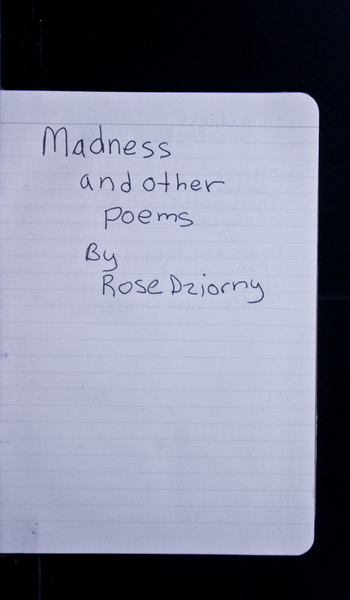 Madness
and other
poems
By
Rose Dziorny